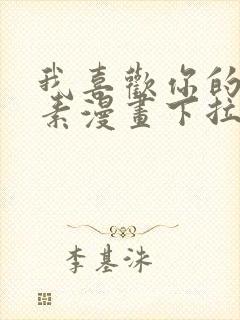 我喜歡你的
素漫畫下拉
李基洙